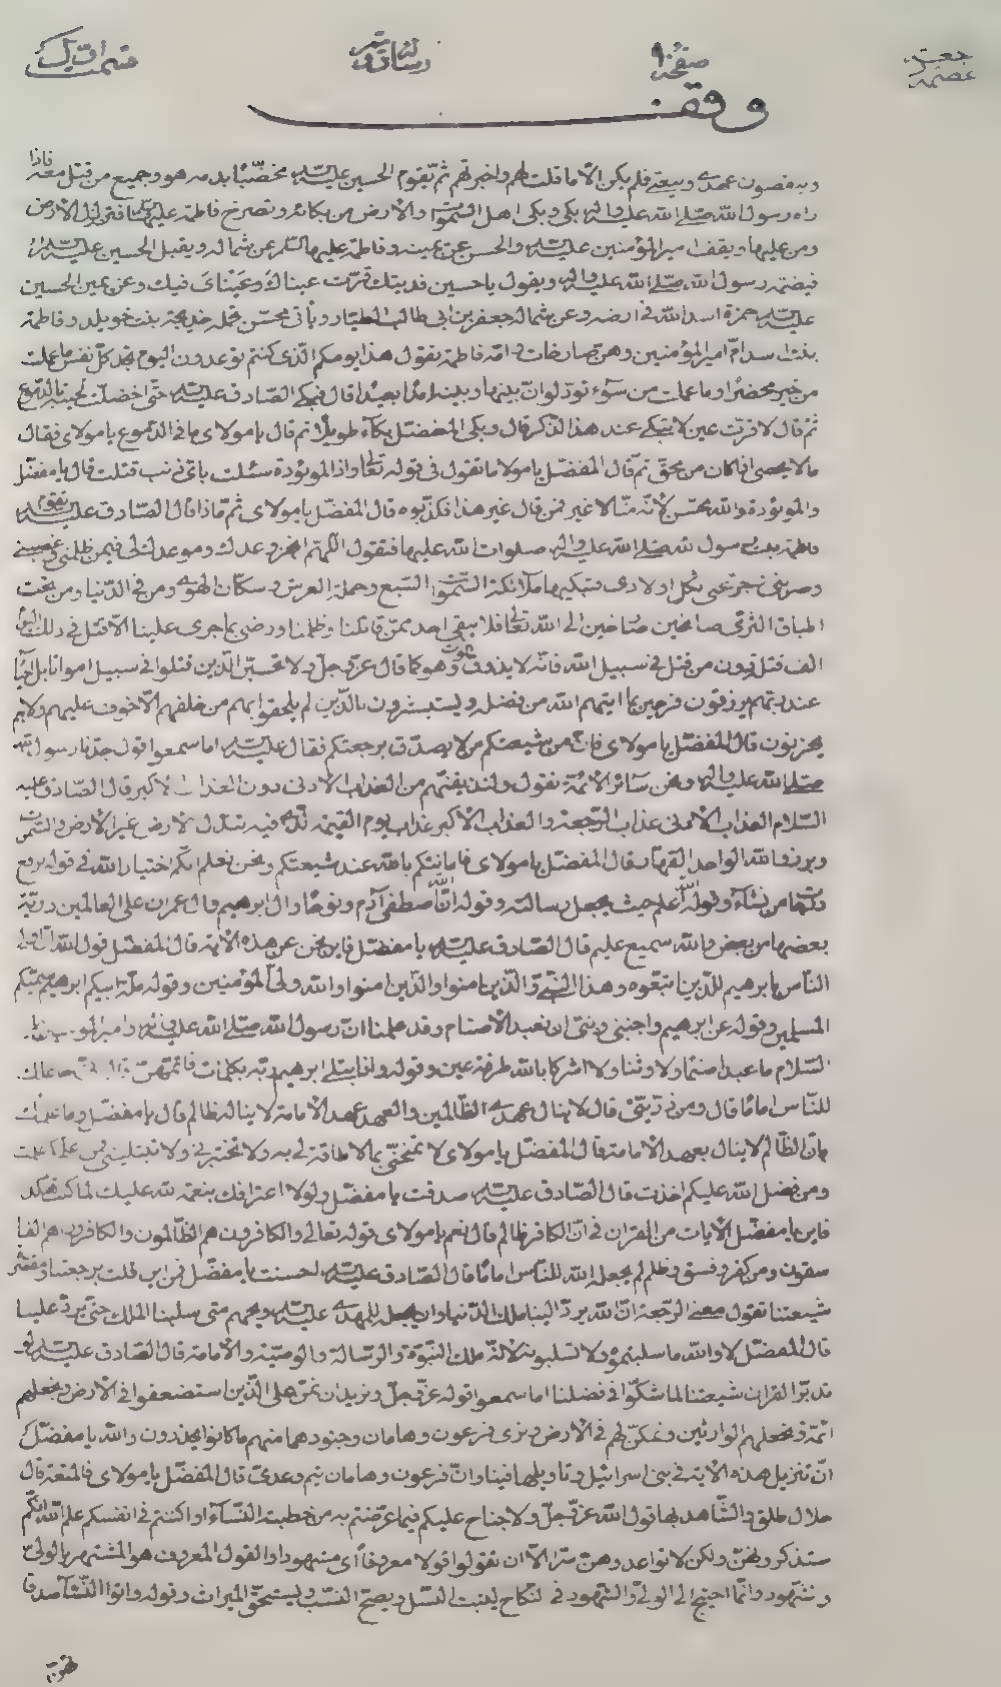 جعت عصمة
صفحه ٩
رساله
قسمت اول
وقف
وينقضون عهدي وبيعتي فلم يكن الا ما قلت لهم واخبرتهم ثم يقوم الحسين عليه السلم مخضبا بدمه هو وجميع من قتل معه فاذا
راه رسول الله صلى الله عليه واله بكى وبكى اهل السموات والارض من بكائه وتصرخ فاطمة عليها فتزلزل الارض
ومن عليها ويقف امير المؤمنين عليه السلم والحسن عن يمينه وفاطمة عليها السلم عن شماله ويقبل الحسين عليه السلم
فيضمه رسول الله صلى الله عليه واله ويقول يا حسين فديتك قرت عيناك وعيناى فيك وعن يمين الحسين
عليه السلم حمزة اسد الله في ارضه وعن شماله جعفر بن ابى طالب الطيار ويأتى محسن تحمله خديجة بنت خويلد وفاطمة
بنت اسد ام امير المؤمنين وهن صارخات وامه فاطمة تقول هذا يومكم الذى كنتم توعدون اليوم تجد كل نفس ما عملت
من خير محضرا وما عملت من سوء تود لو ان بينها وبينه امدا بعيدا قال فبكى الصادق عليه السلم حتى اخضلت لحيته بالدموع
ثم قال لا قرت عين لا تبكى عند هذا الذكر قال وبكى المفضل بكاء طويلا ثم قال يا مولاى ما في الدموع يا مولاى فقال
ما لا يحصى اذا كان من محق ثم قال المفضل يا مولاى ما تقول في قوله تعالى واذا الموؤدة سئلت باى ذنب قتلت قال يا مفضل
والموؤدة والله محسن لانه منا لا غير فمن قال غير هذا فكذبوه قال المفضل يا مولاى ثم ماذا قال الصادق عليه السلم تقوم
فاطمة بنت رسول الله صلى الله عليه واله صلوات الله عليها فتقول اللهم انجز وعدك وموعدك لى فيمن ظلمنى وغصبنى
وضربنى وجزعنى بكل اولادى فتبكيها ملائكة السموات السبع وحملة العرش وسكان الهواء ومن في الدنيا ومن تحت
اطباق الثرى صائحين صارخين الى الله تعالى فلا يبقى احد ممن قاتلنا وظلمنا ورضى بما جرى علينا الا قتل في ذلك اليوم
الف قتلة دون من قتل في سبيل الله فانه لا يذوق الموت وهو كما قال عز وجل ولا تحسبن الذين قتلوا في سبيل الله امواتا بل احياء
عند ربهم يرزقون فرحين بما اتيهم الله من فضله ويستبشرون بالذين لم يلحقوا بهم من خلفهم الا خوف عليهم ولا هم
يحزنون قال المفضل يا مولاى فان من شيعتكم من لا يصدق برجعتكم فقال عليه السلم اما سمعوا قول جدنا رسول الله
صلى الله عليه واله ونحن سائر الائمة نقول ولنذيقنهم من العذاب الادنى دون العذاب الاكبر قال الصادق عليه
السلام العذاب الادنى عذاب الرجعة والعذاب الاكبر عذاب يوم القيمة الذى فيه تبدل الارض غير الارض والسموات
وبرزوا لله الواحد القهار قال المفضل يا مولاى فامامتكم بالله عند شيعتكم ونحن نعلم انكم اختيار الله في قوله نرفع
درجات من نشاء وقوله الله اعلم حيث يجعل رسالته وقوله ان الله اصطفى آدم ونوحا وال ابرهيم وال عمران على العالمين ذرية
بعضها من بعض والله سميع عليم قال الصادق عليه السلم يا مفضل فاين نحن عن هذه الآية قال المفضل قول الله ان اولى
الناس بابرهيم للذين اتبعوه وهذا النبى والذين امنوا والله ولى المؤمنين وقوله ملة ابيكم ابرهيم هو سميكم
المسلمين وقوله عن ابرهيم واجنبنى وبنى ان نعبد الاصنام وقد علمنا ان رسول الله صلى الله عليه واله وامير المؤمنين عليه
السلام ما عبدا صنما ولا وثنا ولا اشركا بالله طرفة عين وقوله واذ ابتلى ابرهيم ربه بكلمات فاتمهن قال انى جاعلك
للناس اماما قال ومن ذريتى قال لا ينال عهدى الظالمين والعهد عهد الامامة لا يناله ظالم قال يا مفضل وما علمك
بان الظالم لا ينال بعهد الامامة قال المفضل يا مولاى لا تمتحنى بما لا طاقة لى به ولا تختبرنى ولا تبتلينى فمن علمكم علمت
ومن فضل الله عليكم اخذت قال الصادق عليه السلم صدقت يا مفضل ولولا اعترافك بنعمة الله عليك لما كنت هكذا
فاين يا مفضل الايات من القران في ان الكافر ظالم قال نعم يا مولاى قوله تعالى والكافرون هم الظالمون والكافرون هم الفا
سقون ومن كفر وفسق وظلم لم يجعله الله للناس اماما قال الصادق عليه السلم احسنت يا مفضل فمن اين قلت برجعتنا ومقصرة
شيعتنا تقول معنى الرجعة ان الله يرد الينا ملك الدنيا وان يجعله للمهدى عليه السلم ويحهم متى سلبنا الملك حتى يرد علينا
قال المفضل لا والله ما سلبتموه ولا تسلبونه لانه ملك النبوة والرسالة والوصية والامامة قال الصادق عليه السلم لو
تدبر القران شيعتنا لما شكوا في فضلنا اما سمعوا قوله عز وجل ونريد ان نمن على الذين استضعفوا في الارض ونجعلهم
ائمة ونجعلهم الوارثين ونمكن لهم في الارض ونرى فرعون وهامان وجنودهما منهم ما كانوا يحذرون والله يا مفضل
ان تنزيل هذه الاية في بنى اسرائيل وتاويلها فينا وان فرعون وهامان تيم وعدى قال المفضل يا مولاى فالمتعة قال
حلال طلق والشاهد بها قول الله عز وجل ولا جناح عليكم فيما عرضتم به من خطبة النساء او اكننتم في انفسكم علم الله انكم
ستذكرونهن ولكن لا تواعدوهن سرا الا ان تقولوا قولا معروفا اى مشهودا والقول المعروف هو المشتهر بالولى
وشهود وانما احتيج الى الولى والشهود في النكاح ليثبت النسل ويصح النسب ويستحق الميراث وقوله واتوا النساء صدقا